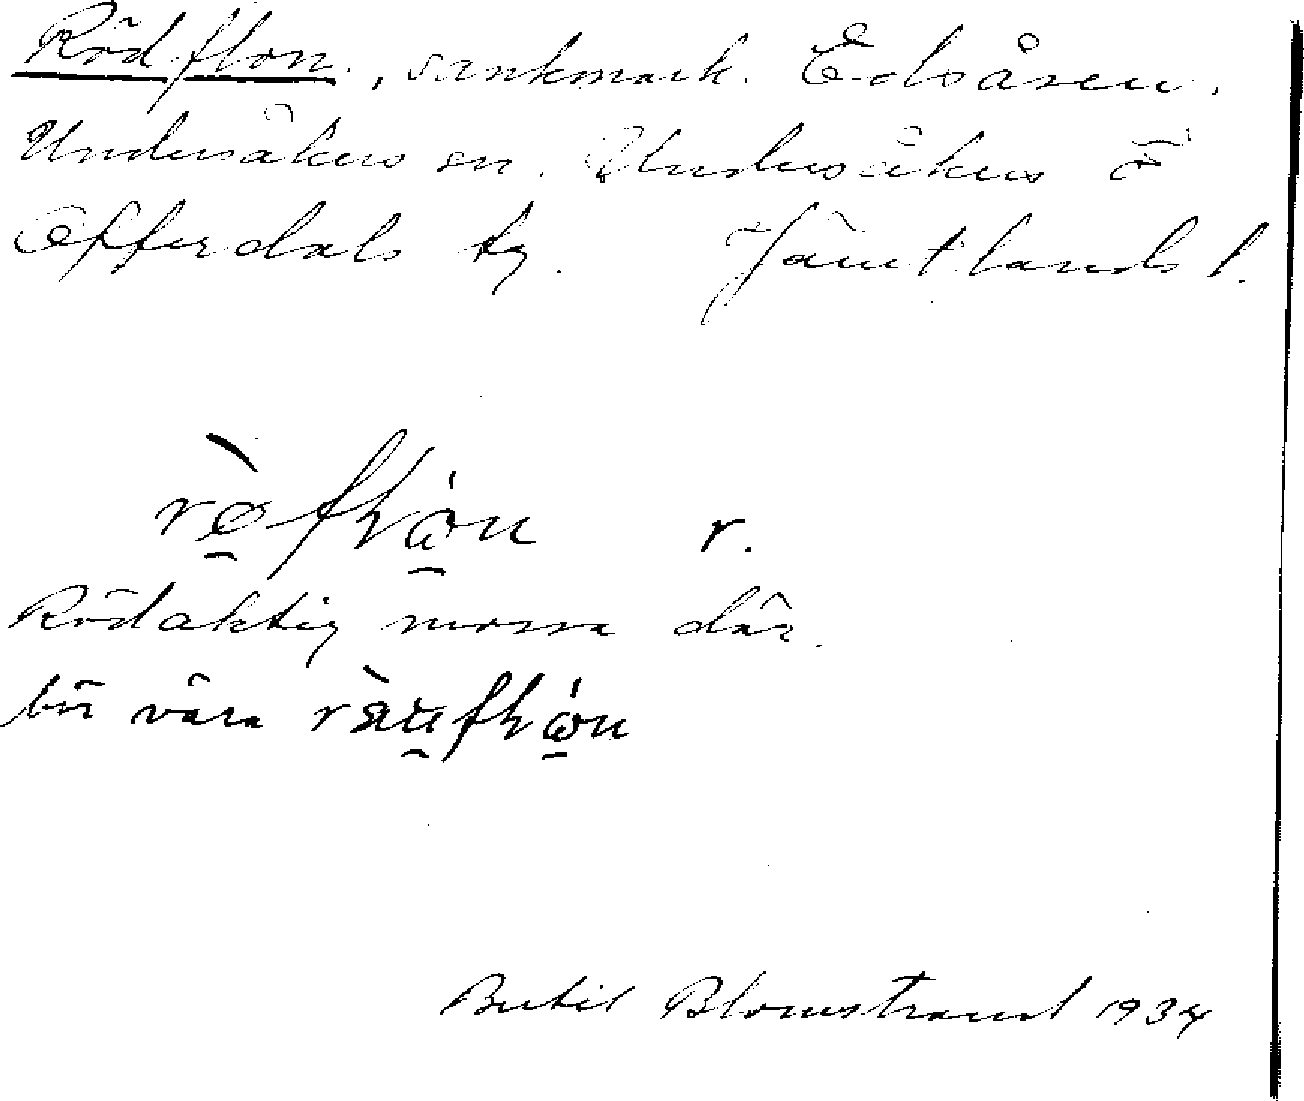 Rödflon., sankmark. Edsåsen.
Undersåkers sn. Undersåkers o
Offerdals tg. Jämtlands l.
r.
Rödaktig mossa där.
bör vara
Bertil Blomstrand 1934